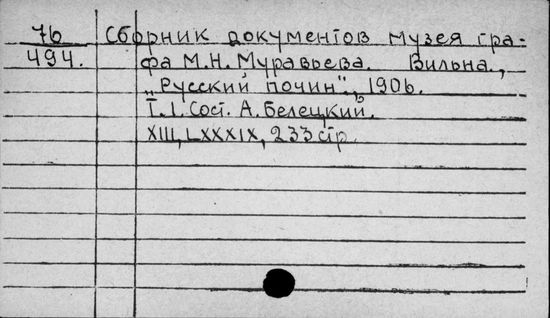 76 Сборник документов музея гра-
494. фа М.Н. Муравьева. Вильна.,
„Русский почин“, 1906.
Т.1. Сост. А. Белецкий.
XIII, LXXXIX, 233 стр.